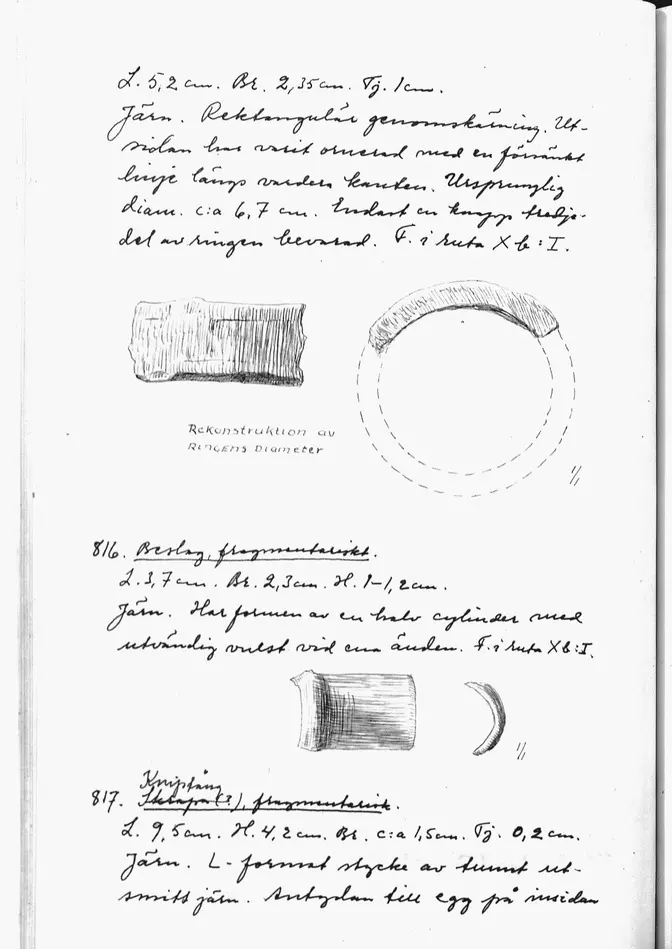 L. 5,2 cm. Br. 2,35 cm. Tj. 1 cm.
Järn. Rektangulär genomskärning. Ut-
sidan har varit ornerad med en försänkt
linje längs vardera kanten. Ursprunglig
diam. c:a 6,7 cm. Endast en knapp tredje-
del av ringen bevarad. F. i ruta X b : I.
Rekonstruktion av
Ringens Diameter
1/1
816. Beslag, fragmentariskt.
L. 3,7 cm. Br. 2,3 cm. H. 1–1,2 cm.
Järn. Har formen av en halv cylinder med
utvändig vulst vid ena änden. F. i ruta X b : I.
1/1
Kniptång
817. Skrapa (?), fragmentarisk.
L. 9,5 cm. H. 4,2 cm. Br. c:a 1,5 cm. Tj. 0,2 cm.
Järn. L-format stycke av tunnt ut-
smitt järn. Antydan till egg på insidan